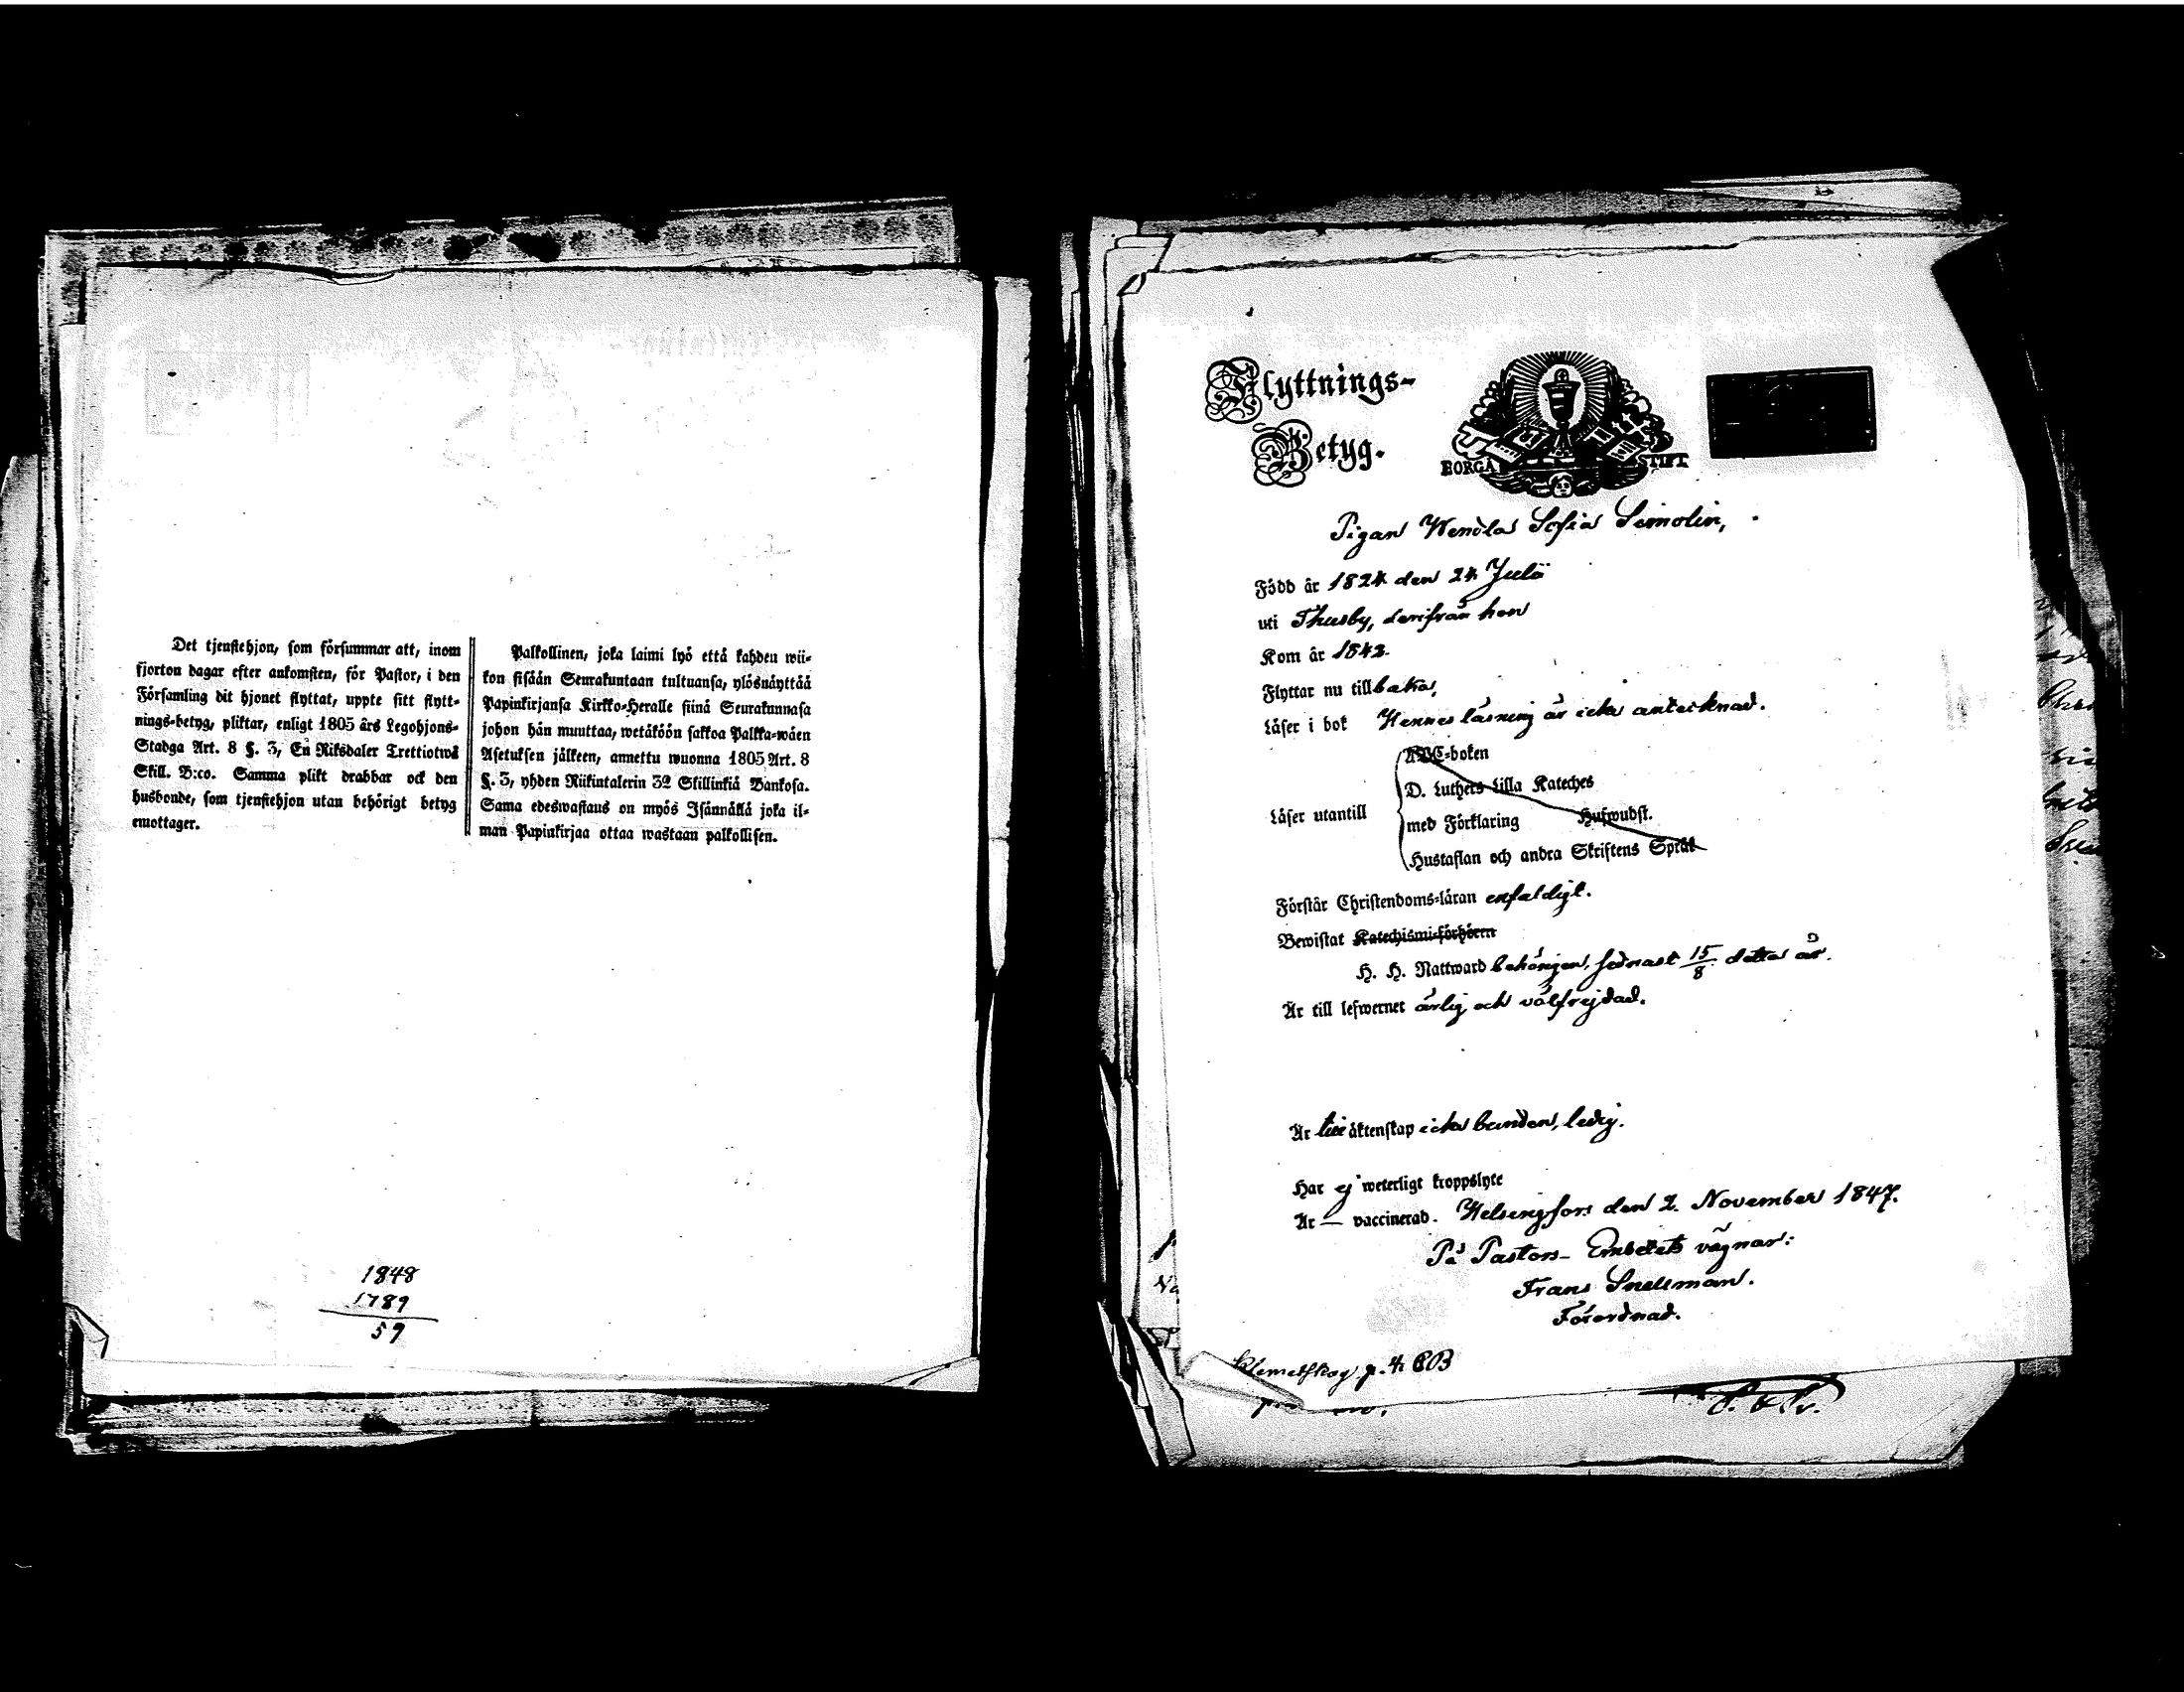 Det tjenstehjon, som försummar att, inom
fjorton dagar efter ankomsten, för Pastor, i den
Församling dit hjonet flyttat, uppte sitt flytt-
nings-betyg, pliktar, enligt 1805 års Legohjons-
Stadga Art. 8 §. 3, En Riksdaler Trettiotwå
Skill. B:co. Samma plikt drabbar ock den
husbonde, som tjenstehjon utan behörigt betyg
emottager.
Palkollinen, joka laimi lyö että kahden wii-
kon sisään Seurakuntaan tultuansa, ylösnäyttää
Papinkirjansa Kirkko-Heralle siinä Seurakunnasa
johon hän muuttaa, wetäköön sakkoa Palkka-wäen
Asetuksen jälkeen, annettu wuonna 1805 Art. 8
§. 3, yhden Riikintalerin 32 Skillinkiä Bankosa.
Sama edeswastaus on myös Isännällä joka il-
man Papinkirjaa ottaa wastaan palkollisen.
1848
1789
59
Flyttnings-
Betyg.
BORGÅ STIFT
Pigan Wendla Sofia Simolin,
Född år 1824 den 24 Julii
uti Thusby, derifrån hon
Kom år 1842.
Flyttar nu tillbaka,
Läser i bok Hennes läsning är icke antecknad.
ABC-boken
D. Luthers Lilla Kateches
Läser utantill
med Förklaring Hufwudst.
Hustaflan och andra Skriftens Språk
Förstår Christendoms-läran enfaldigt.
Bewistat Katechismi-förhören
H. H. Nattward behörigen, sednast 15/8 detta år.
Är till lefwernet ärlig och välfrejdad.
Är till äktenskap icke bunden, ledig.
Har ej weterligt kroppslyte
Är — vaccinerad. Helsingfors den 2. November 1847.
På Pastors-Embetets vägnar:
Frans Snellman.
Förordnad.
Klemetskog p. 4 CB